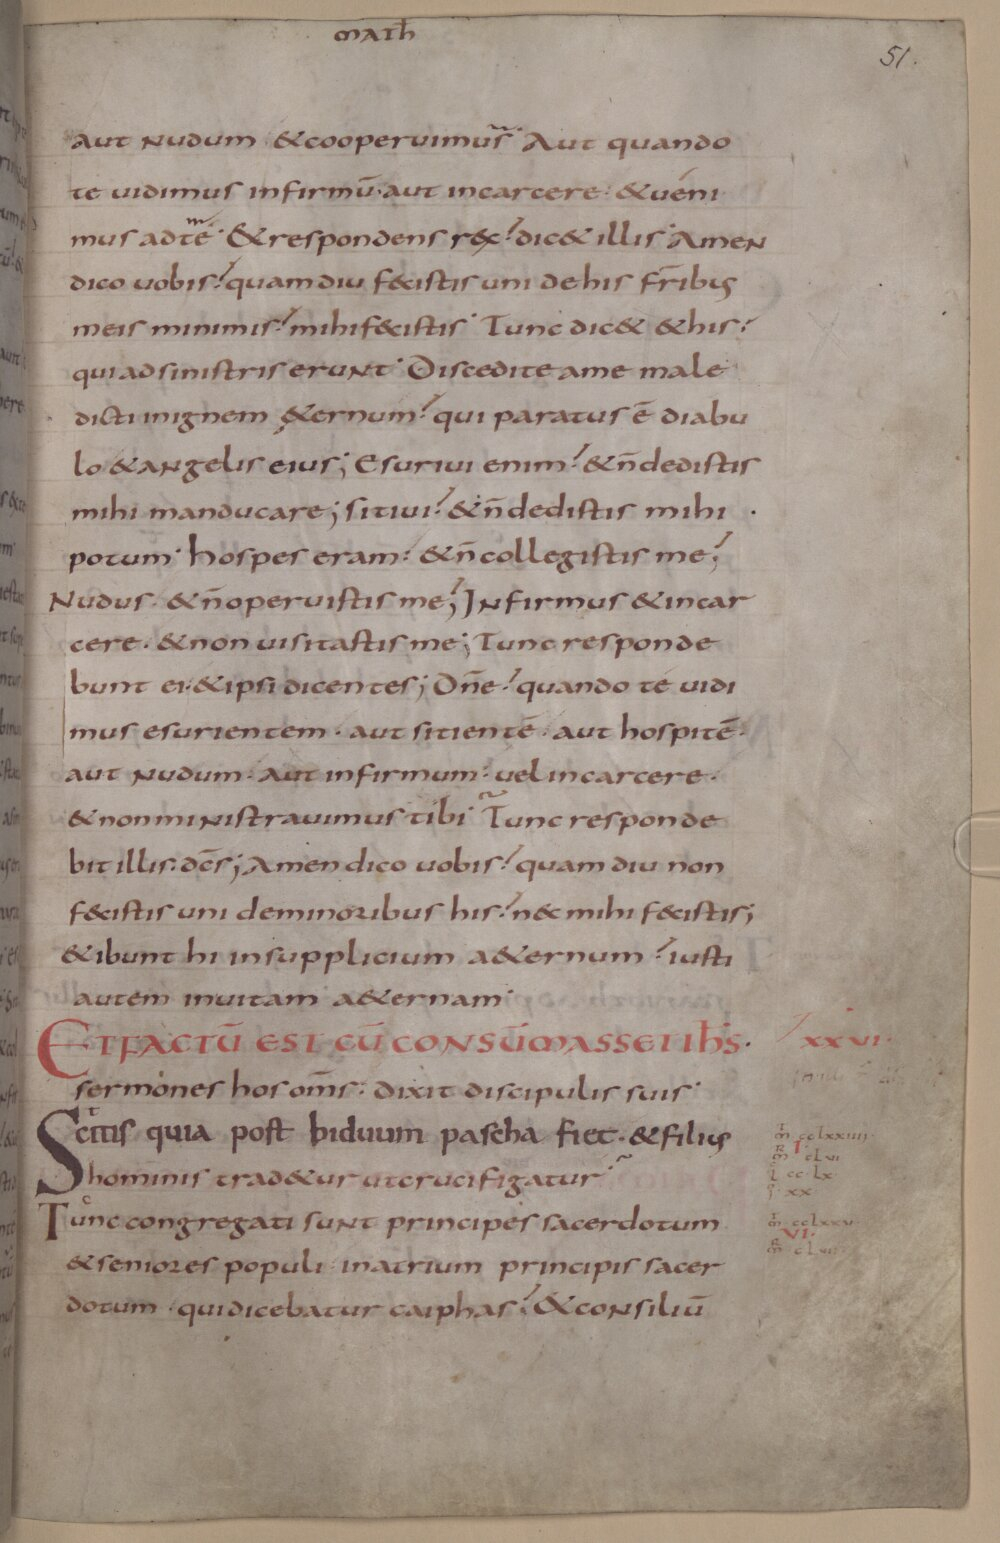 math
51.
aut nudum &cooperuimus Aut quando
te uidimus infirmū·aut incarcere· &ueni
mus adtē &respondens rex? dic& illis· Amen
dico uobis? quamdiu f&cistis uni dehis fr̄ibus
meis minimis? mihif&cistis· Tunc dic& &his?
quiadsinistris erunt· Discedite ame male
dicti inignem &ernum? qui paratus ē diabu
lo &angelis eius; Esuriui enim? &n̄dedistis
mihi manducare; sitiui? &n̄dedistis mihi
potum· hospes eram· &n̄collegistis me;
Nudus· &n̄operuistis me; Infirmus &incar
cere· &non uisitastis me; Tunc responde
bunt ei·&ipsi dicentes; Dn̄e? quando te uidi
mus esurientem· aut sitientē· aut hospitē·
aut nudum· aut infirmum· uel incarcere·
&nonministrauimus tibi· Tunc responde
bit illis·dc̄s; Amen dico uobis? quam diu non
f&cistis uni deminoribus his? n&c mihi f&cistis;
&ibunt hi insupplicium a&ernum? iusti
autem inuitam a&ernam·
ETFACTŪ EST CŪ CONSŪMASSET IH̄S· XXVI·
sermones hos om̄s· dixit discipulis suis·
Scitis quia post biduum pascha fiet· &filius
hominis trad&ur utcrucifigatur·
Tunc congregati sunt principes sacerdotum
&seniores populi inatrium principis sacer
dotum· quidicebatur caiphas? &consiliū
m̄ cclxxiiii·
I
m̄ clvi
L cc·lx
I·xx
m̄ cclxxv·
VI·